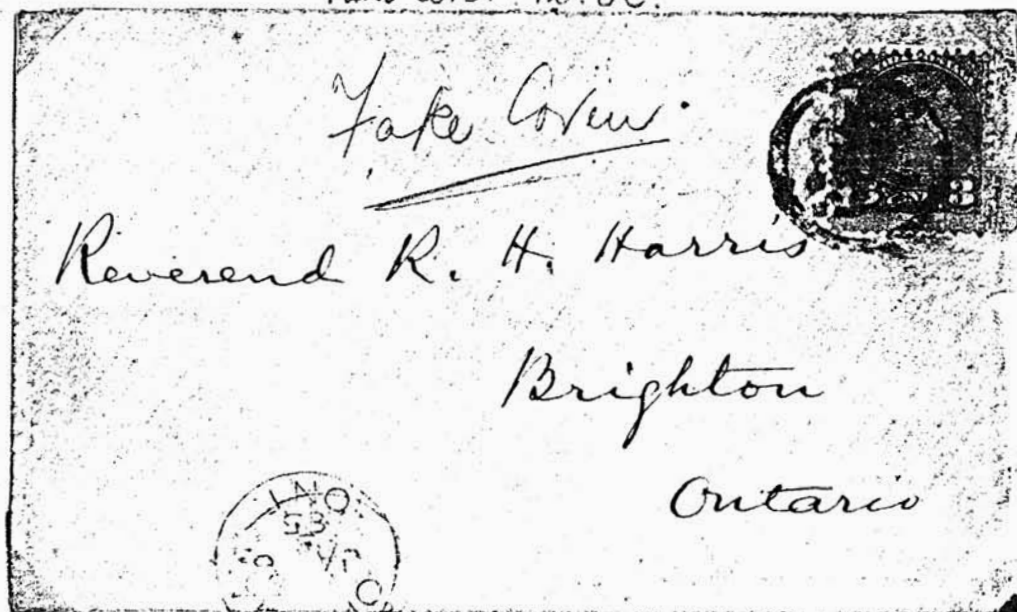 Fake Cover.
Reverend R. H. Harris
Brighton
Ontario
ONT.